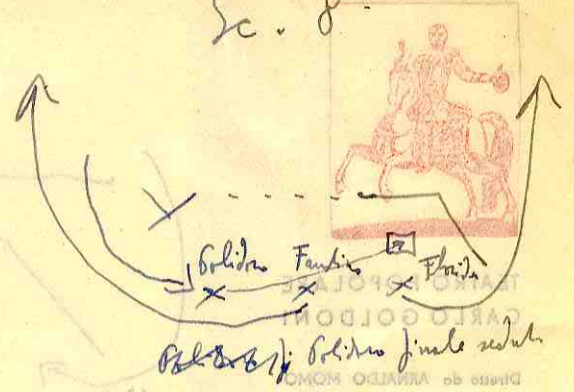 Sc. 8
Polidoro Faustino Florida
Polidoro finale seduti
TEATRO POPOLARE
CARLO GOLDONI
Diretto da ARNALDO MOMO